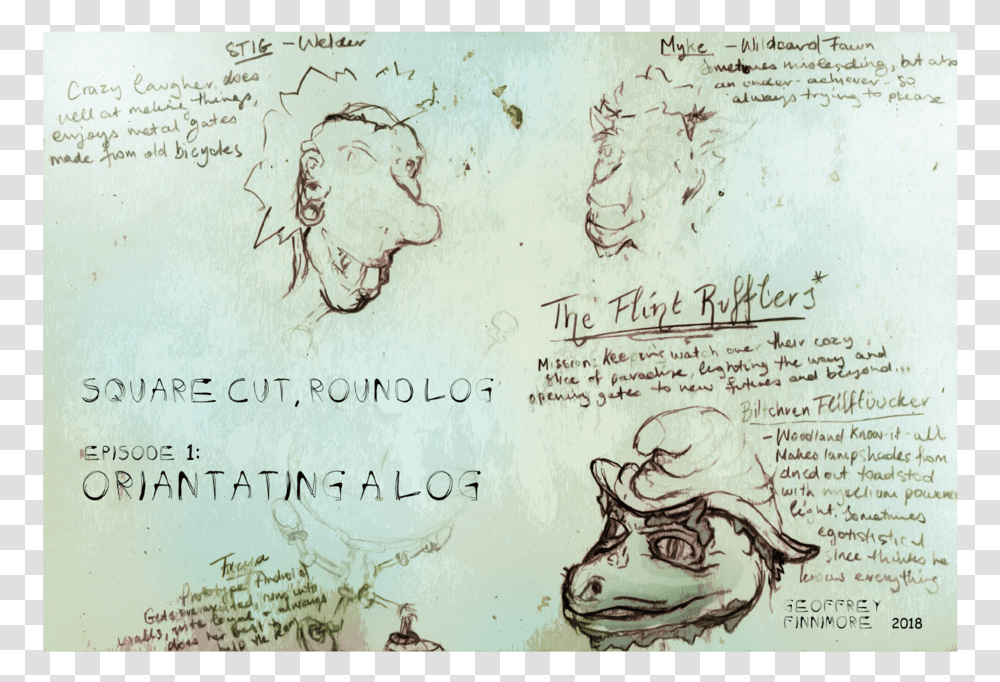 STIG - Welder
Crazy laugher, does
well at making things,
enjoys metal gates
made from old bicycles
Myke - Wildcard Fawn
Sometimes misleading, but also
an under-achiever, so
always trying to please
The Flint Rufflers*
Mission: Keeping watch over their cozy
slice of paradise, lighting the way and
opening gates to new futures and beyond...
SQUARE CUT, ROUND LOG
EPISODE 1:
ORIANTATING A LOG
Biltchren Flifftüücker
- Woodland Know-it-all
Makes lampshades from
dried out toadstool
with mycelium powered
light. Sometimes
egotistical
since thinks he
knows everything
Freya
Prototype Android of
always
does her best
help the
GEOFFREY
FINNIMORE 2018